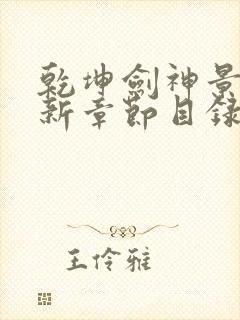 乾坤劍神景
新章節目錄
王伶雅